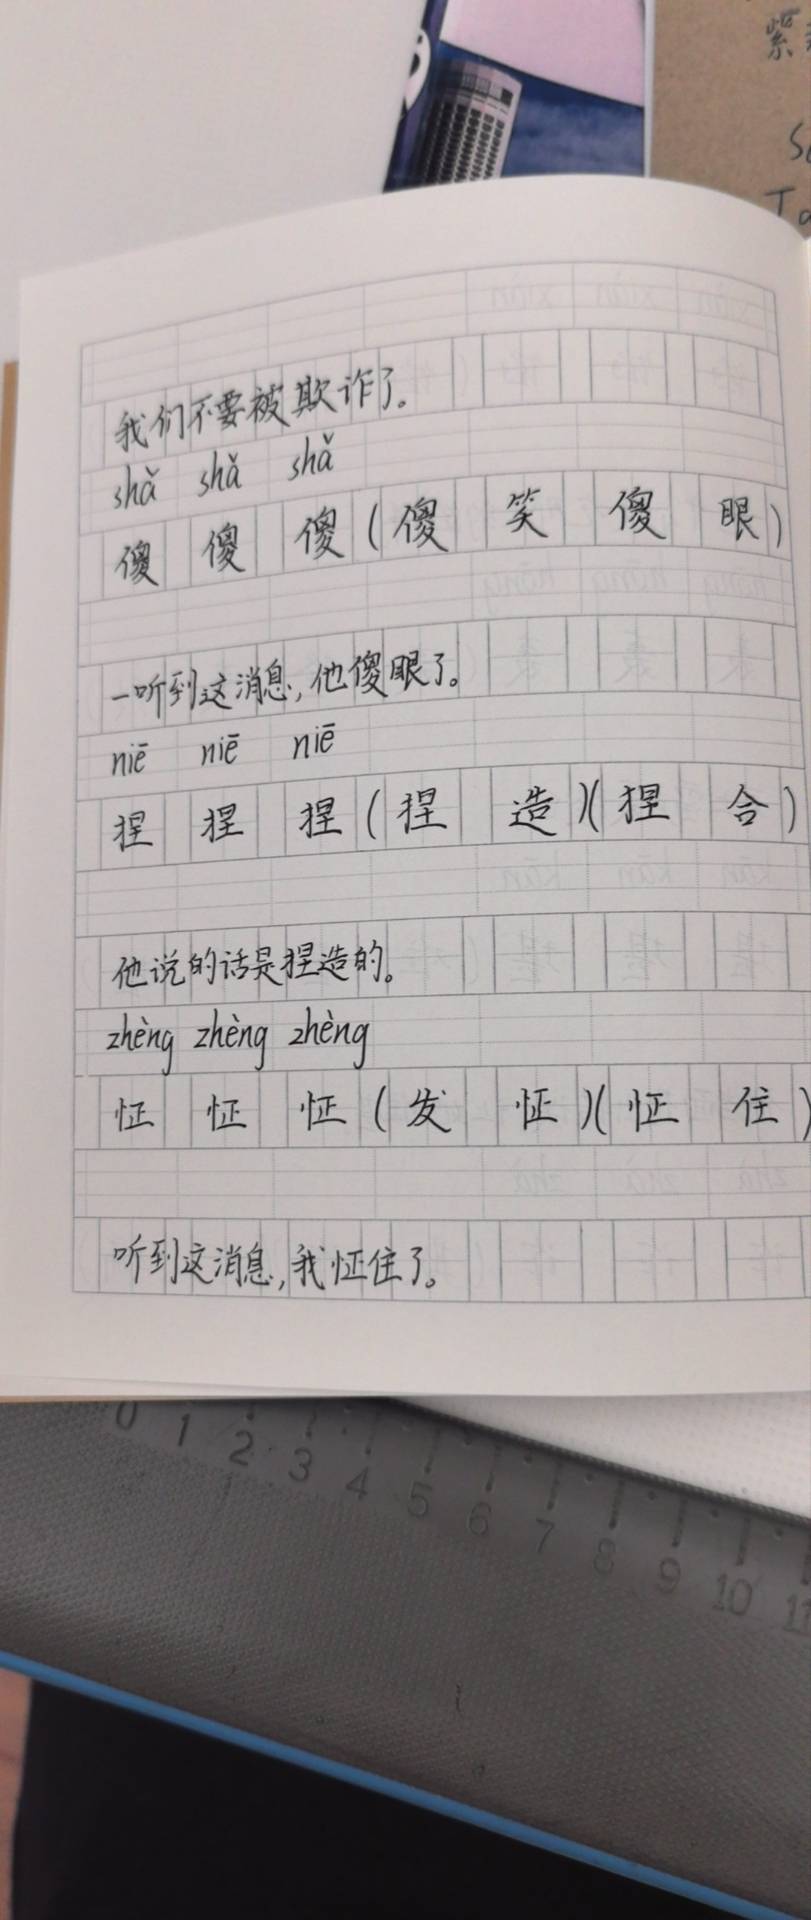 紫
我们不要被欺诈了。
shǎ shǎ shǎ
傻 傻 傻 (傻 笑 傻 眼)
一听到这消息,他傻眼了。
niē niē niē
捏 捏 捏 (捏 造)(捏 合)
他说的话是捏造的。
zhèng zhèng zhèng
怔 怔 怔 (发 怔)(怔 住)
听到这消息,我怔住了。
0 1 2 3 4 5 6 7 8 9 10 11